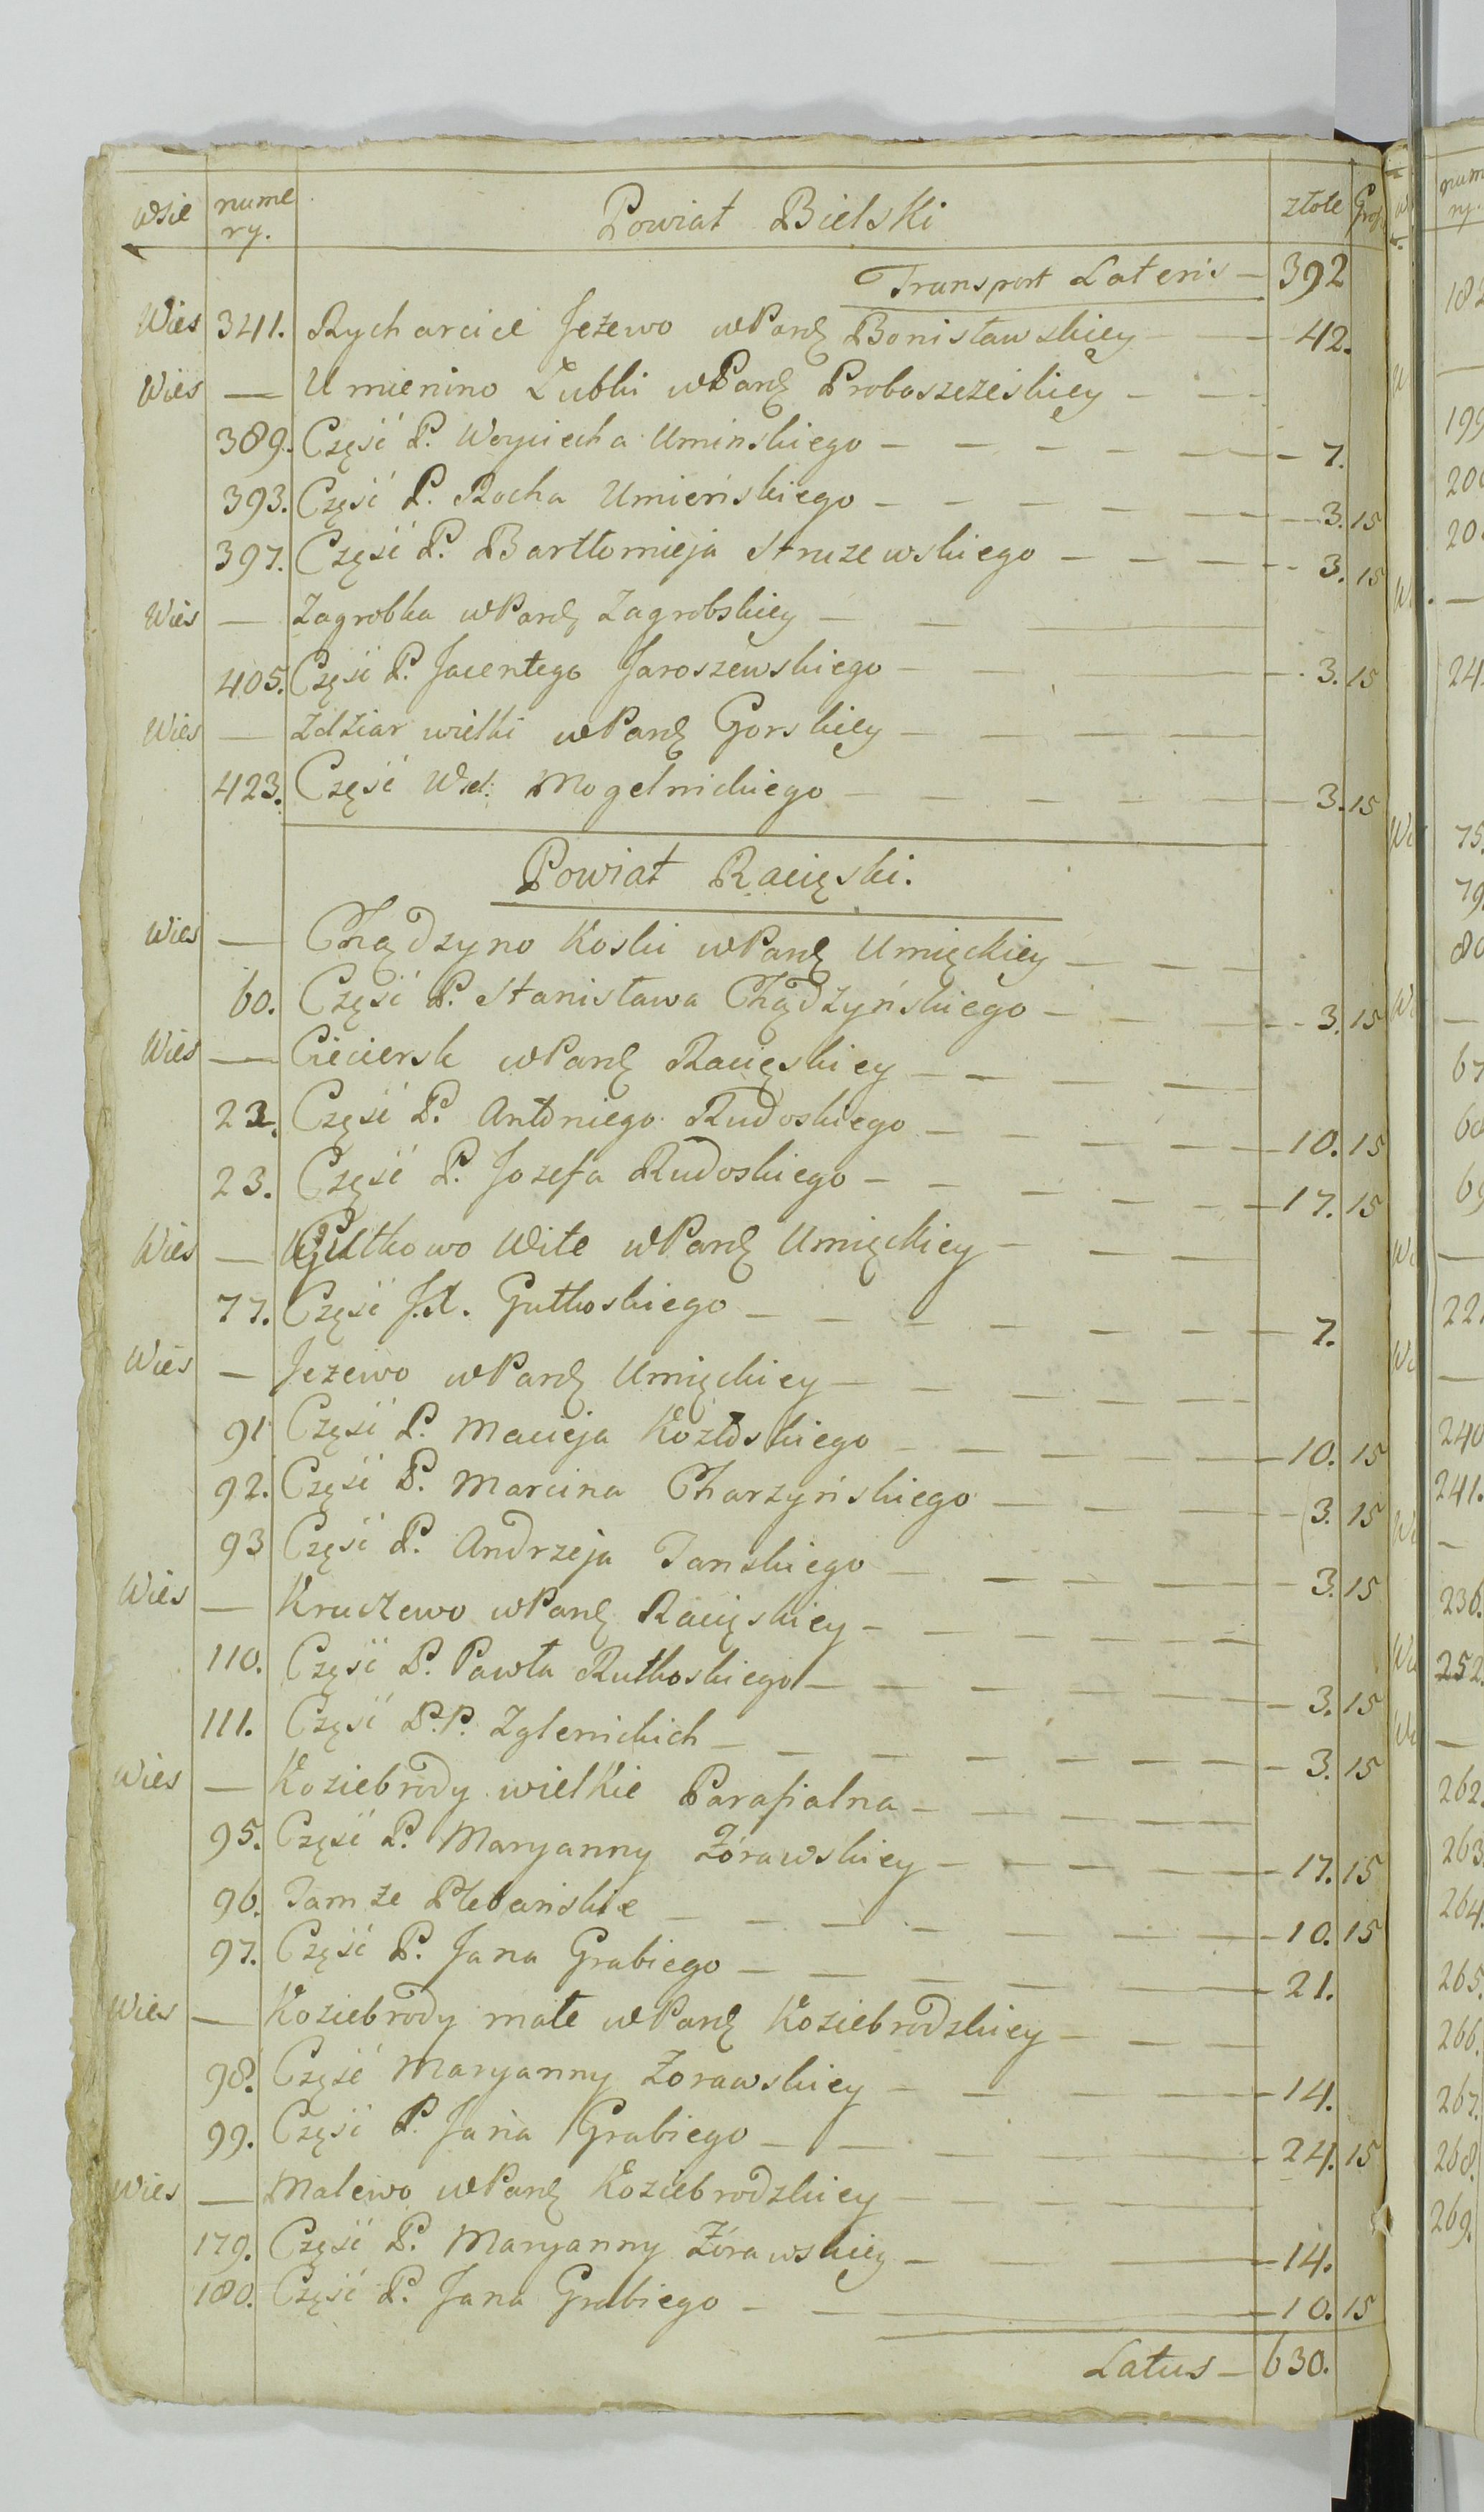 wsie numery. Powiat Bielski złote Gro
Transport Lateris — 392
Wieś 341. Rycharcice Jeżewo w Par: Bonisławskiey — 42.
Wieś — Umienino Łubki w Par: Proboszczeskiey —
389. Część P. Woyciecha Uminskiego — 7.
393. Część P. Rocha Umieńskiego — 3. 15
397. Część P. Bartłomieja Struzewskiego — 3. 15
Wieś — Zagrobka w Par: Zagrobskiey —
405. Część P. Jacentego Jaroszewskiego — 3. 15
Wieś — Zdżiar wielki w Par: Gorskiey —
423. Część Wd: Mogelnickiego — 3. 15
Powiat Raciąski.
Wieś — Chądzyno Koski w Par: Umięckiey —
60. Część P. Stanisława Chądzyńskiego — 3. 15
Wieś — Cieciersk w Par: Raciąskiey —
22. Część P. Antoniego Rudoskiego — 10. 15
23. Część P. Jozefa Rudoskiego — 17. 15
Wieś — Gutkowo Wite w Par: Umięckiey —
77. Część J.X. Gutkoskiego — 7.
Wieś — Jeżewo w Par: Umięckiey —
91 Część P. Macieja Kozłoskiego — 10. 15
92. Część P. Marcina Charzyńskiego — 3. 15
93 Część P. Andrzeja Tanskiego — 3. 15
Wieś — Kraszewo w Par: Raciąskiey —
110. Część P. Pawła Rutkoskiego — 3. 15
111. Część P.P. Zglenickich — 3. 15
Wieś — Koziebrody wielkie Parafialna —
95. Część P. Maryanny Żórawskiey — 17. 15
96. Tamże Plebańskie — 10. 15
97. Część P. Jana Grabiego — 21.
Wieś — Koziebrody małe w Par: Koziebrodzkiey —
98. Część Maryanny Zorawskiey — 14.
99. Część P. Jana Grabiego — 24. 15
Wieś — Malewo w Par: Koziebrodzkiey —
179. Część P. Maryanny Żórawskiey — 14.
180. Część P. Jana Grabiego — 10. 15
Latus — 630.